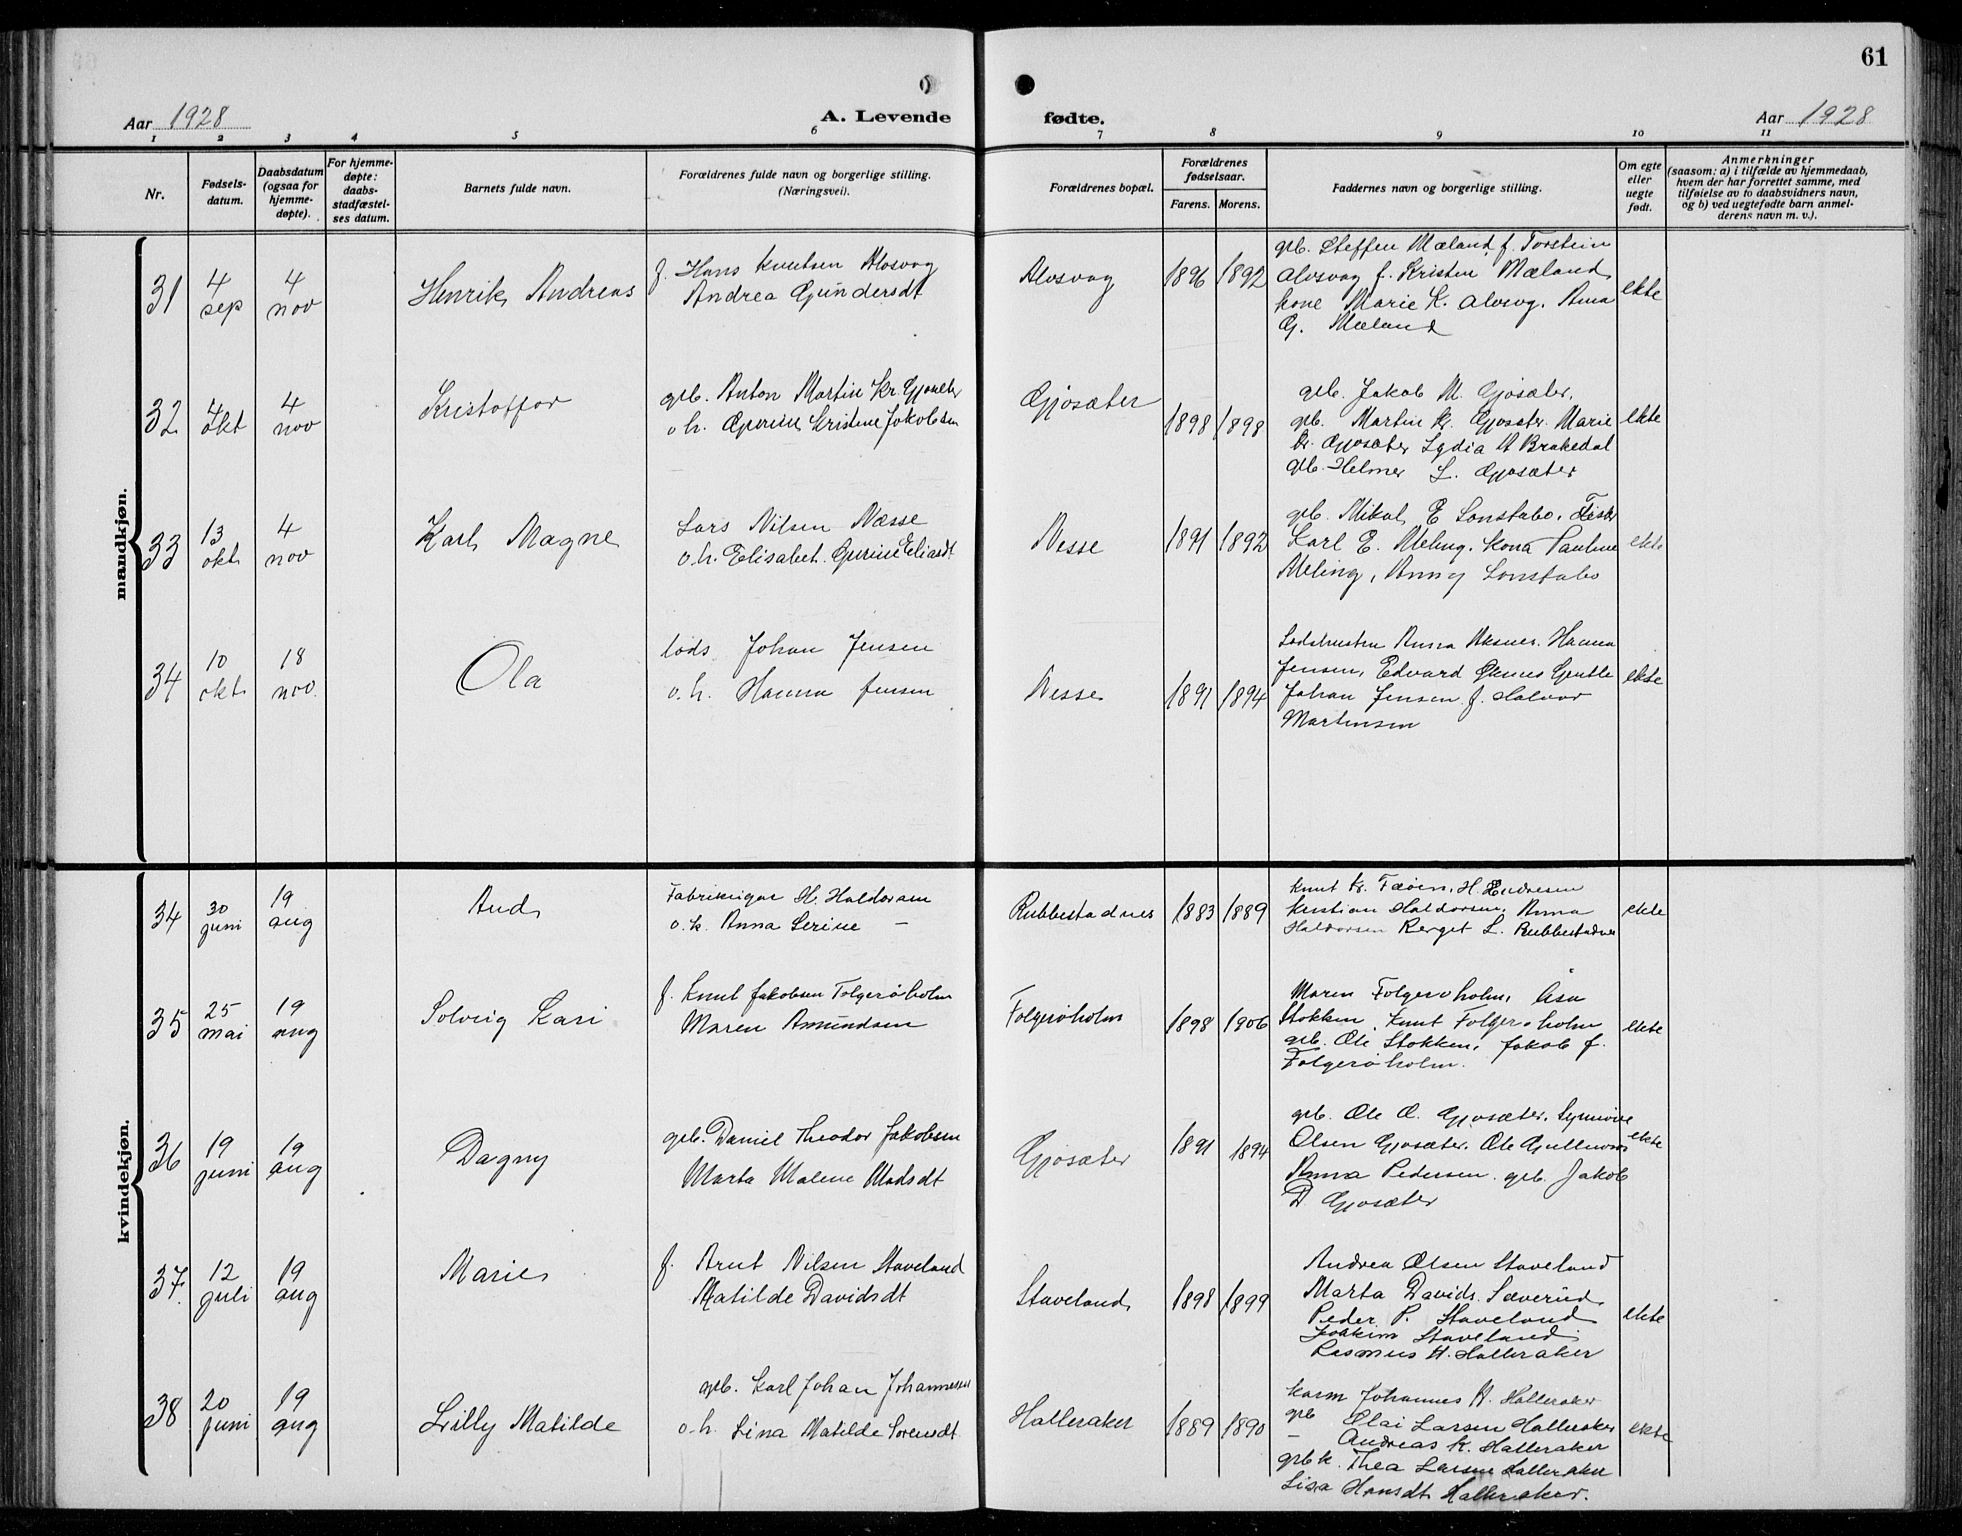 61
Aar 1928
A. Levende
fødte.
Aar 1928
1 2 3 4 5 6 7 8 9 10 11
Nr.
Fødsels-
datum.
Daabsdatum
(ogsaa for
hjemme-
døpte).
For hjemme-
døpte:
daabs-
stadfæstel-
ses datum.
Barnets fulde navn.
Forældrenes fulde navn og borgerlige stilling.
(Næringsvei).
Forældrenes bopæl.
Forældrenes
fødselsaar.
Farens. Morens.
Faddernes navn og borgerlige stilling.
Om egte
eller
uegte
født.
Anmerkninger
(saasom: a) i tilfælde av hjemmedaab,
hvem der har forrettet samme, med
tilføielse av to daabsvidners navn,
og b) ved uegtefødte barn anmel-
derens navn m. v.).
mandkjøn.
31
4
sep
4
nov
Henrik Andreas
f. Hans Knutsen Alosvag
Andrea Gundersdt
Alosvag
1896 1892
grb. Steffen Mæland, f. Torstein
Alvsvag f. Kristen Mæland
kone Marie K. Alvsvg. Anna
G. Mæland
ekte
32
4
okt
4
nov
Kristoffor
grb. Anton Martin Kr. Gjosæter
o. h. Gurine Kristine Jakobsen
Gjosæter
1898 1898
grb. Jakob M. Gjosæter,
grb. Martin Kr. Gjosæter. Marie
Kr. Gjosæter Lydia A Brakedal
grb. Helmer L. Gjosæter
ekte
33
13
okt
4
nov
Karl Magne
Lars Nilsen Næsse
o. h. Elisabet Gurine Eliasdt
Nesse
1891 1892
grb. Mikal E Lonstabo. Fisk
Karl E. Meling. Kona Pauline
Meling, Anny Lonstabo
ekte
34
10
okt
18
nov.
Ola
lods Johan Jensen
o. h. Hanna Jensen
Nesse
1891 1894
Lodshustru Anna Aksnes. Hanna
Jensen, Edvard Øksnes
Johan Jensen f. Halvor
Martinsen
ekte
kvindekjøn.
34
30
juni
19
aug
Aud
Fabrikeigar H. Haldorsen
o. k. Anna Serine —
Rubbestadnes
1883 1889
Knut Kr. Føien, H. Endresen
Kristian Haldorsen, Anna
Haldorsen Berget L. Rubbestadnes
ekte
35
25
mai
19
aug
Solveig Kari
f. Knut Jakobsen Folgerøholm
Maren Amundsen
Folgerøholm
1898 1906
Maren Folgerøholm, Åsa
Stokken, Knut Folgerøholm
grb. Ole Stokken, Jakob f.
Folgerøholm.
ekte
36
19
juni
19
aug
Dagny
grb. Daniel Theodor Jakobsen
Marta Malene Madsdt
Gjosæter
1891 1894
grb. Ole O. Gjosæter, Synnøve
Olsen Gjosæter. Ole
Anna Pedersen. grb. Jakob
D. Gjosæter
ekte
37
12
juli
19
aug
Marie
f. Arnt Nilsen Staveland
Matilde Davidsdt
Staveland
1898 1899
Andrea Olsen Staveland
Marta Davids. Sæverud
Peder P. Staveland
Joakim Staveland
Rasmus H. Halleraker
ekte
38
20
juni
19
aug
Lilly Matilde
grb. Karl Johan Johannesen
o. h. Lina Matilde Sorensdt
Halleraker
1889 1890
Karm Johannes H. Halleraker
grb Olai Larsen Halleraker
— Andreas K. Halleraker
grb k. Thea Larsen Halleraker
Lisa Hansdt Halleraker.
ekte